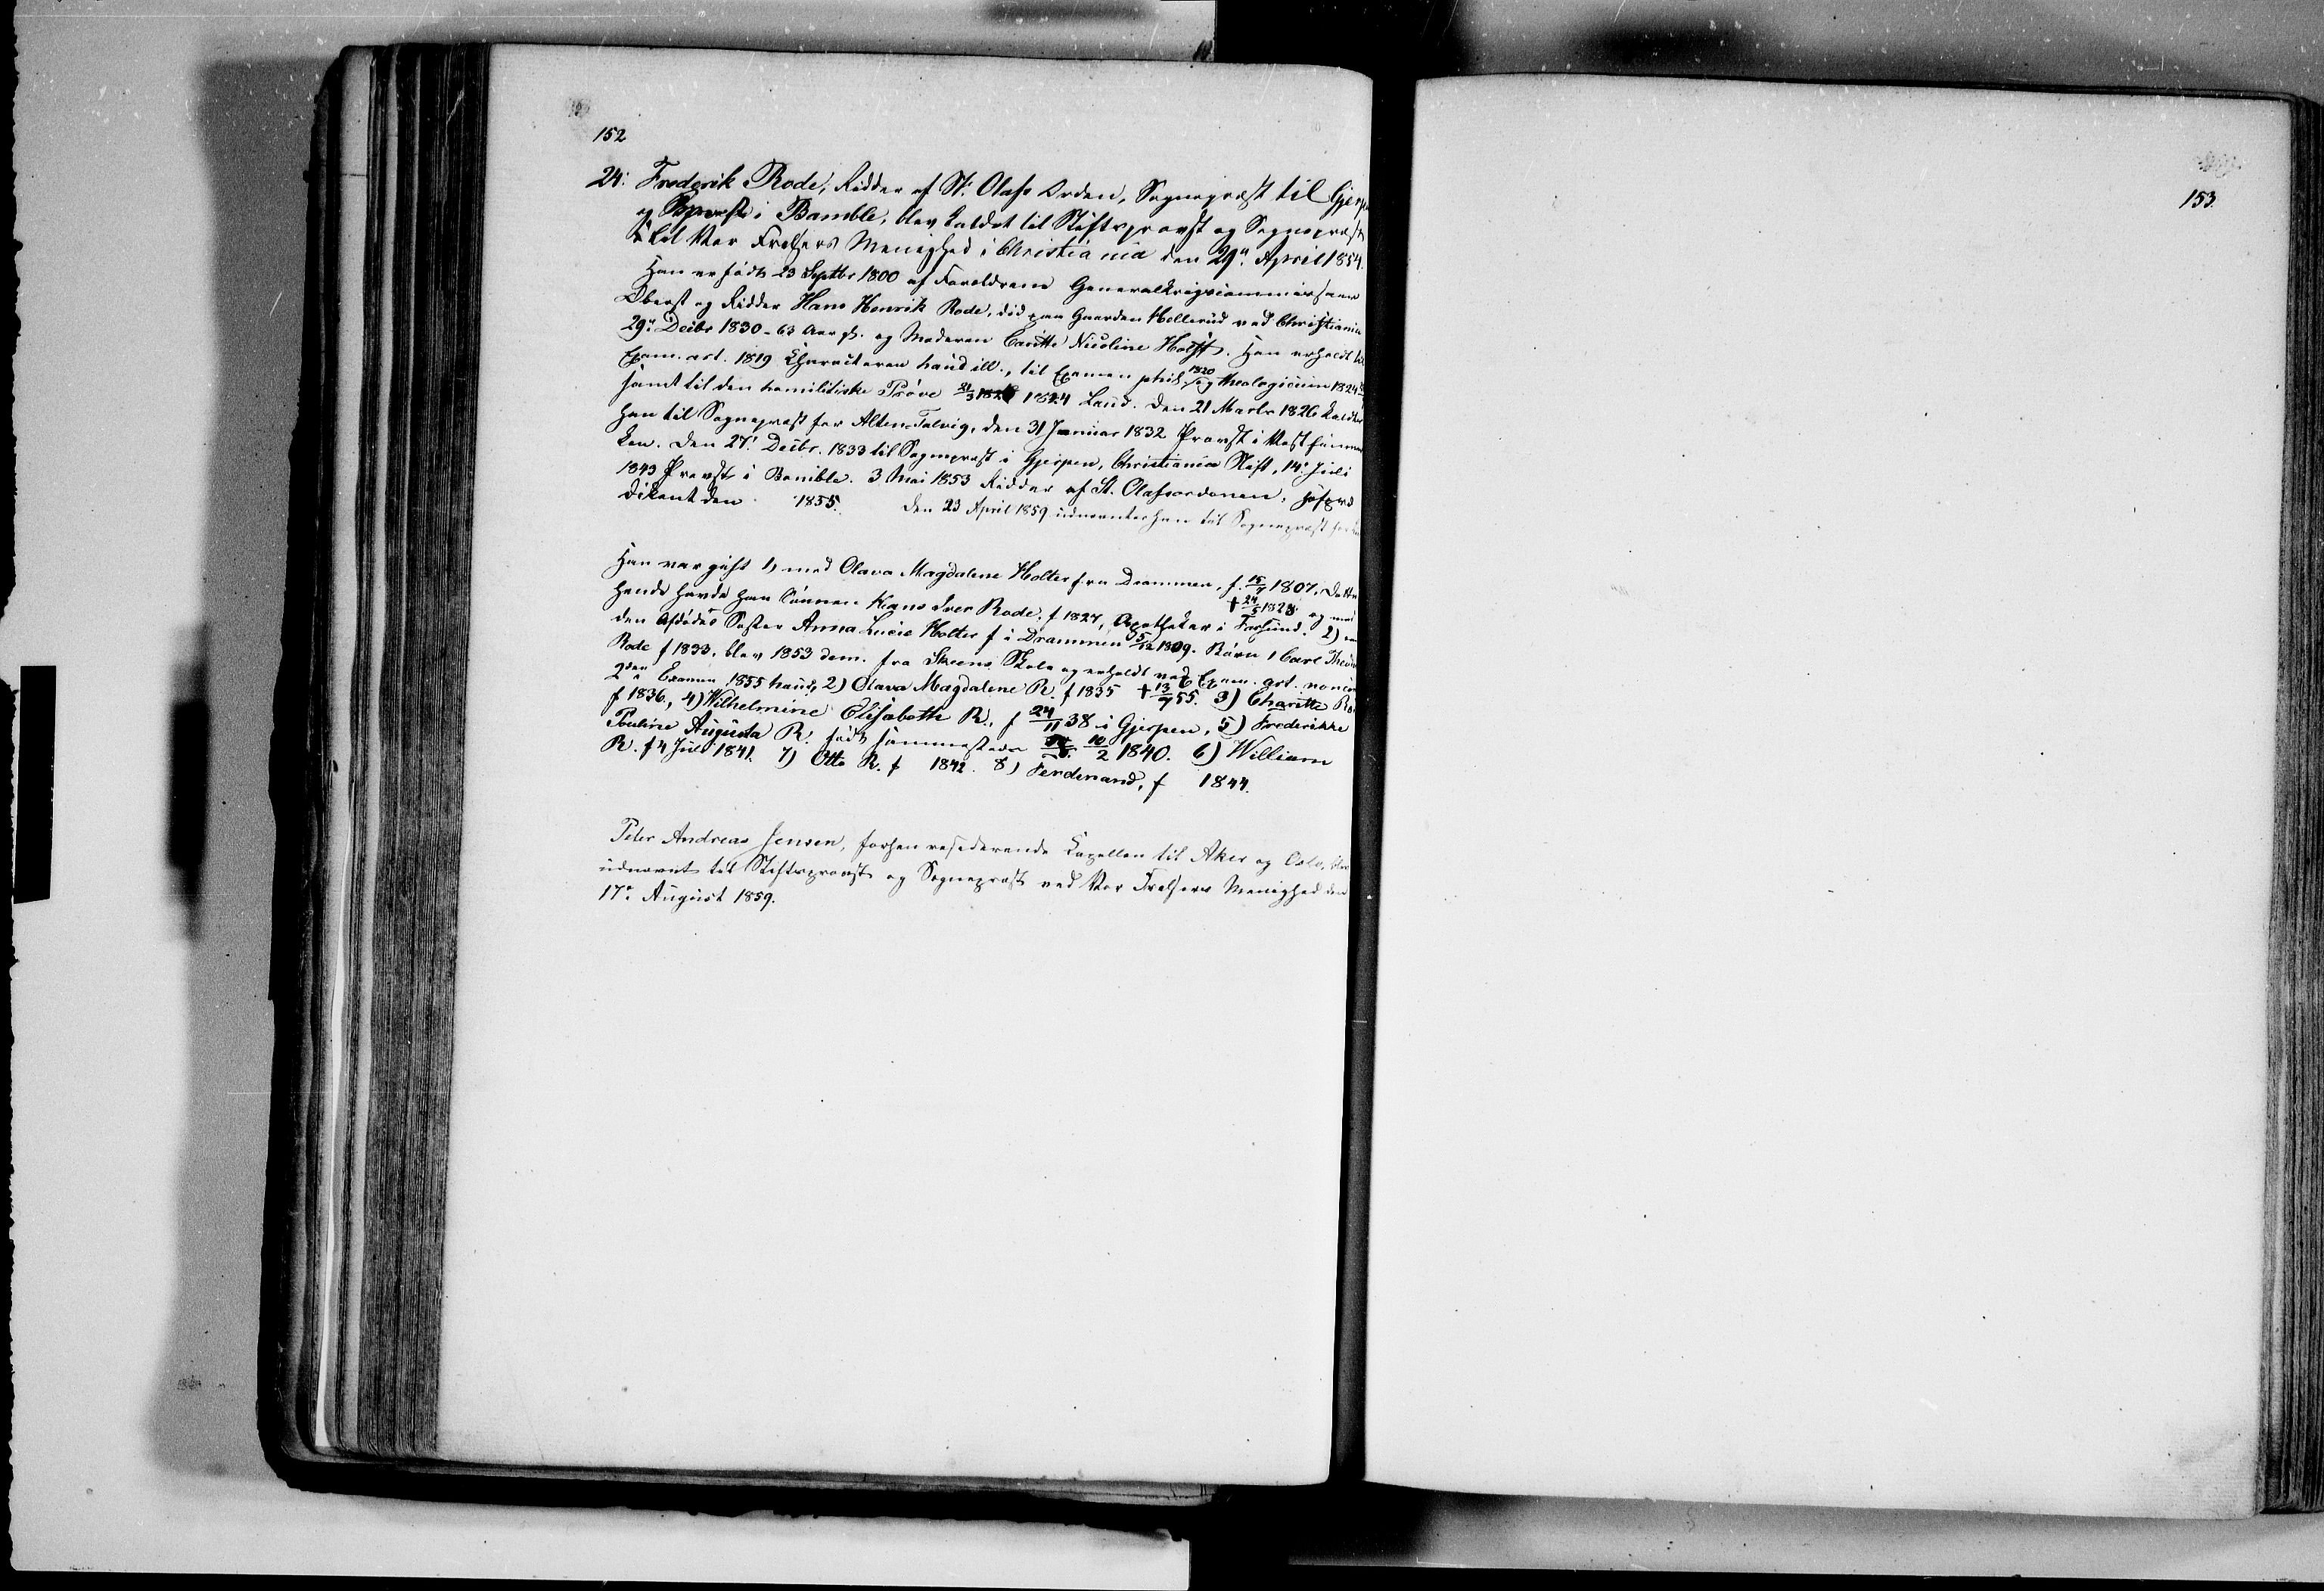 152
24. Frederik Rode, Ridder af St. Olafs Orden, Sognepræst til Gjerp
og Provst i Bamble, blev kaldet til Stiftsprovst og Sognepræst
til Vor Frelsers Menighed i Christiania den 29de April 1854.
Han er født 23 Septbr 1800 af Forældrene Generalkrigscommissær
Oberst og Ridder Hans Henrik Rode, død paa Gaarden Hellerud ved Christiania
29de Decbr 1830 - 63 Aar gl. og Moderen Caritte Nicoline Holst. Han erholdt til
Exam. art. 1819 Characteren haud ill., til Examen phil. 1820 og theologicum 1824
samt til den homiletiske Prøve 1824 Laud. Den 21 Marts 1826 kaldtes
han til Sognepræst for Alten-Talvig, den 31 Januar 1832 Provst i Vestfinmar
ken. Den 27de Decbr. 1833 til Sognepræst i Gjerpen, Christiania Stift, 14de Juli
1843 Provst i Bamble. 3 Mai 1853 Ridder af St. Olafsordenen, Hofpræ
dikant den 1855. Den 23 April 1859 udnævntes han til Sognepræst for
Han var gift 1) med Olava Magdalene Holter fra Drammen, f. 15/7 1807, Dette
† 24/5 1828
hende havde han Sønnen Hans Iver Rode, f 1827, Apotheker i Farsund. og med 2)
den Afdødes Søster Anna Lucie Holter f i Drammen 5/12 1809. Børn 1 Carl Theodor
Rode f 1833, blev 1853 dem. fra Skeens Skole og erholdt ved Exam. art. non
2den Examen 1855 haud, 2) Olava Magdalene R. f 1835 † 13/7 55. 3) Charitte Ro
f 1836, 4) Wilhelmine Elisabeth R., f 24/11 38 i Gjerpen, 5) Frederikke
Pauline Augusta R. født sammesteds 10/2 1840. 6) William
R. f 4 Juli 1841. 7) Otto R. f 1842. 8) Ferdinand, f 1844.
Peter Andreas Jensen, forhen residerende Capellan til Aker og Oslo, blev
udnævnt til Stiftsprovst og Sognepræst ved Vor Frelsers Menighed den
17de August 1859.
153